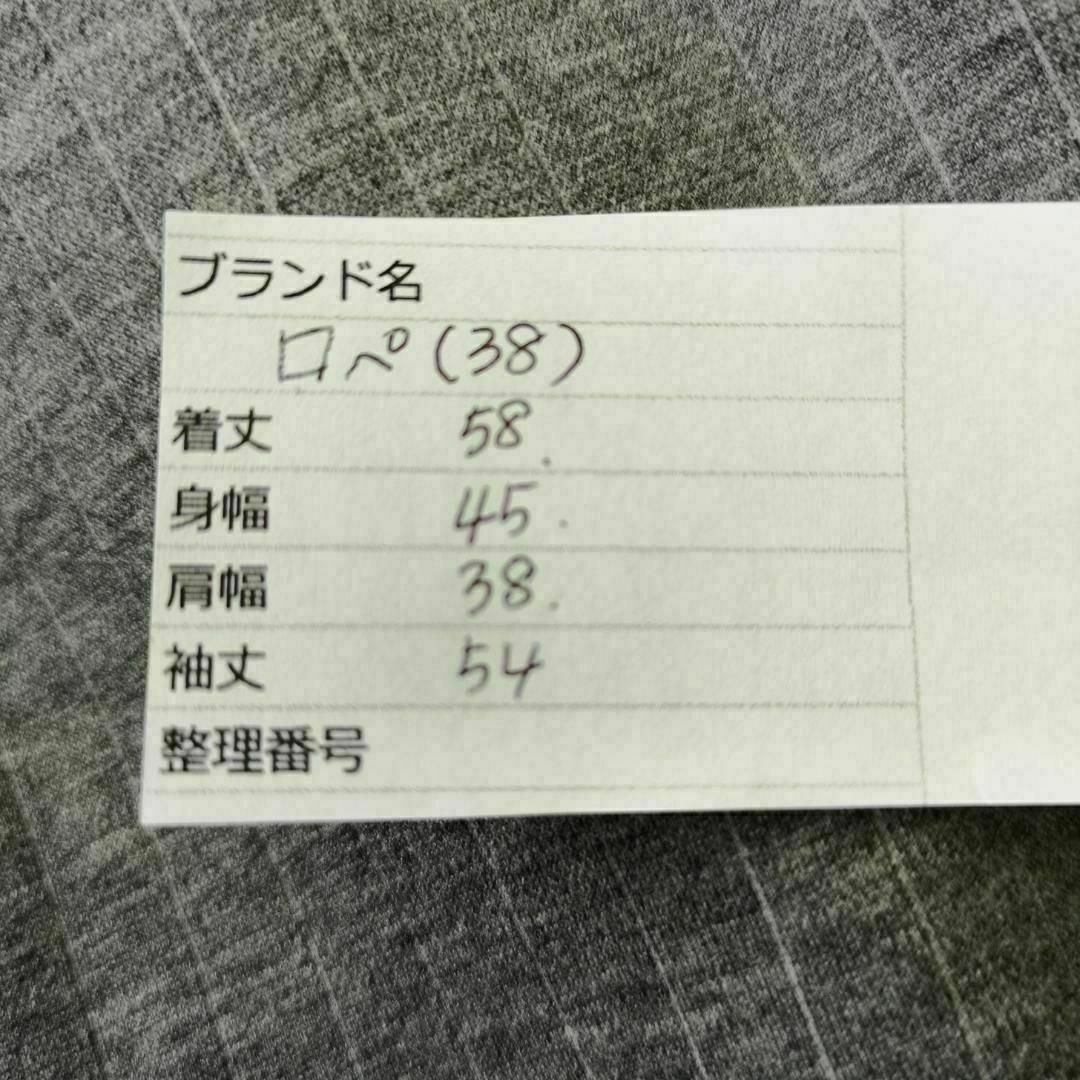 ブランド名
ロペ(38)
着丈 58.
身幅 45.
肩幅 38.
袖丈 54
整理番号